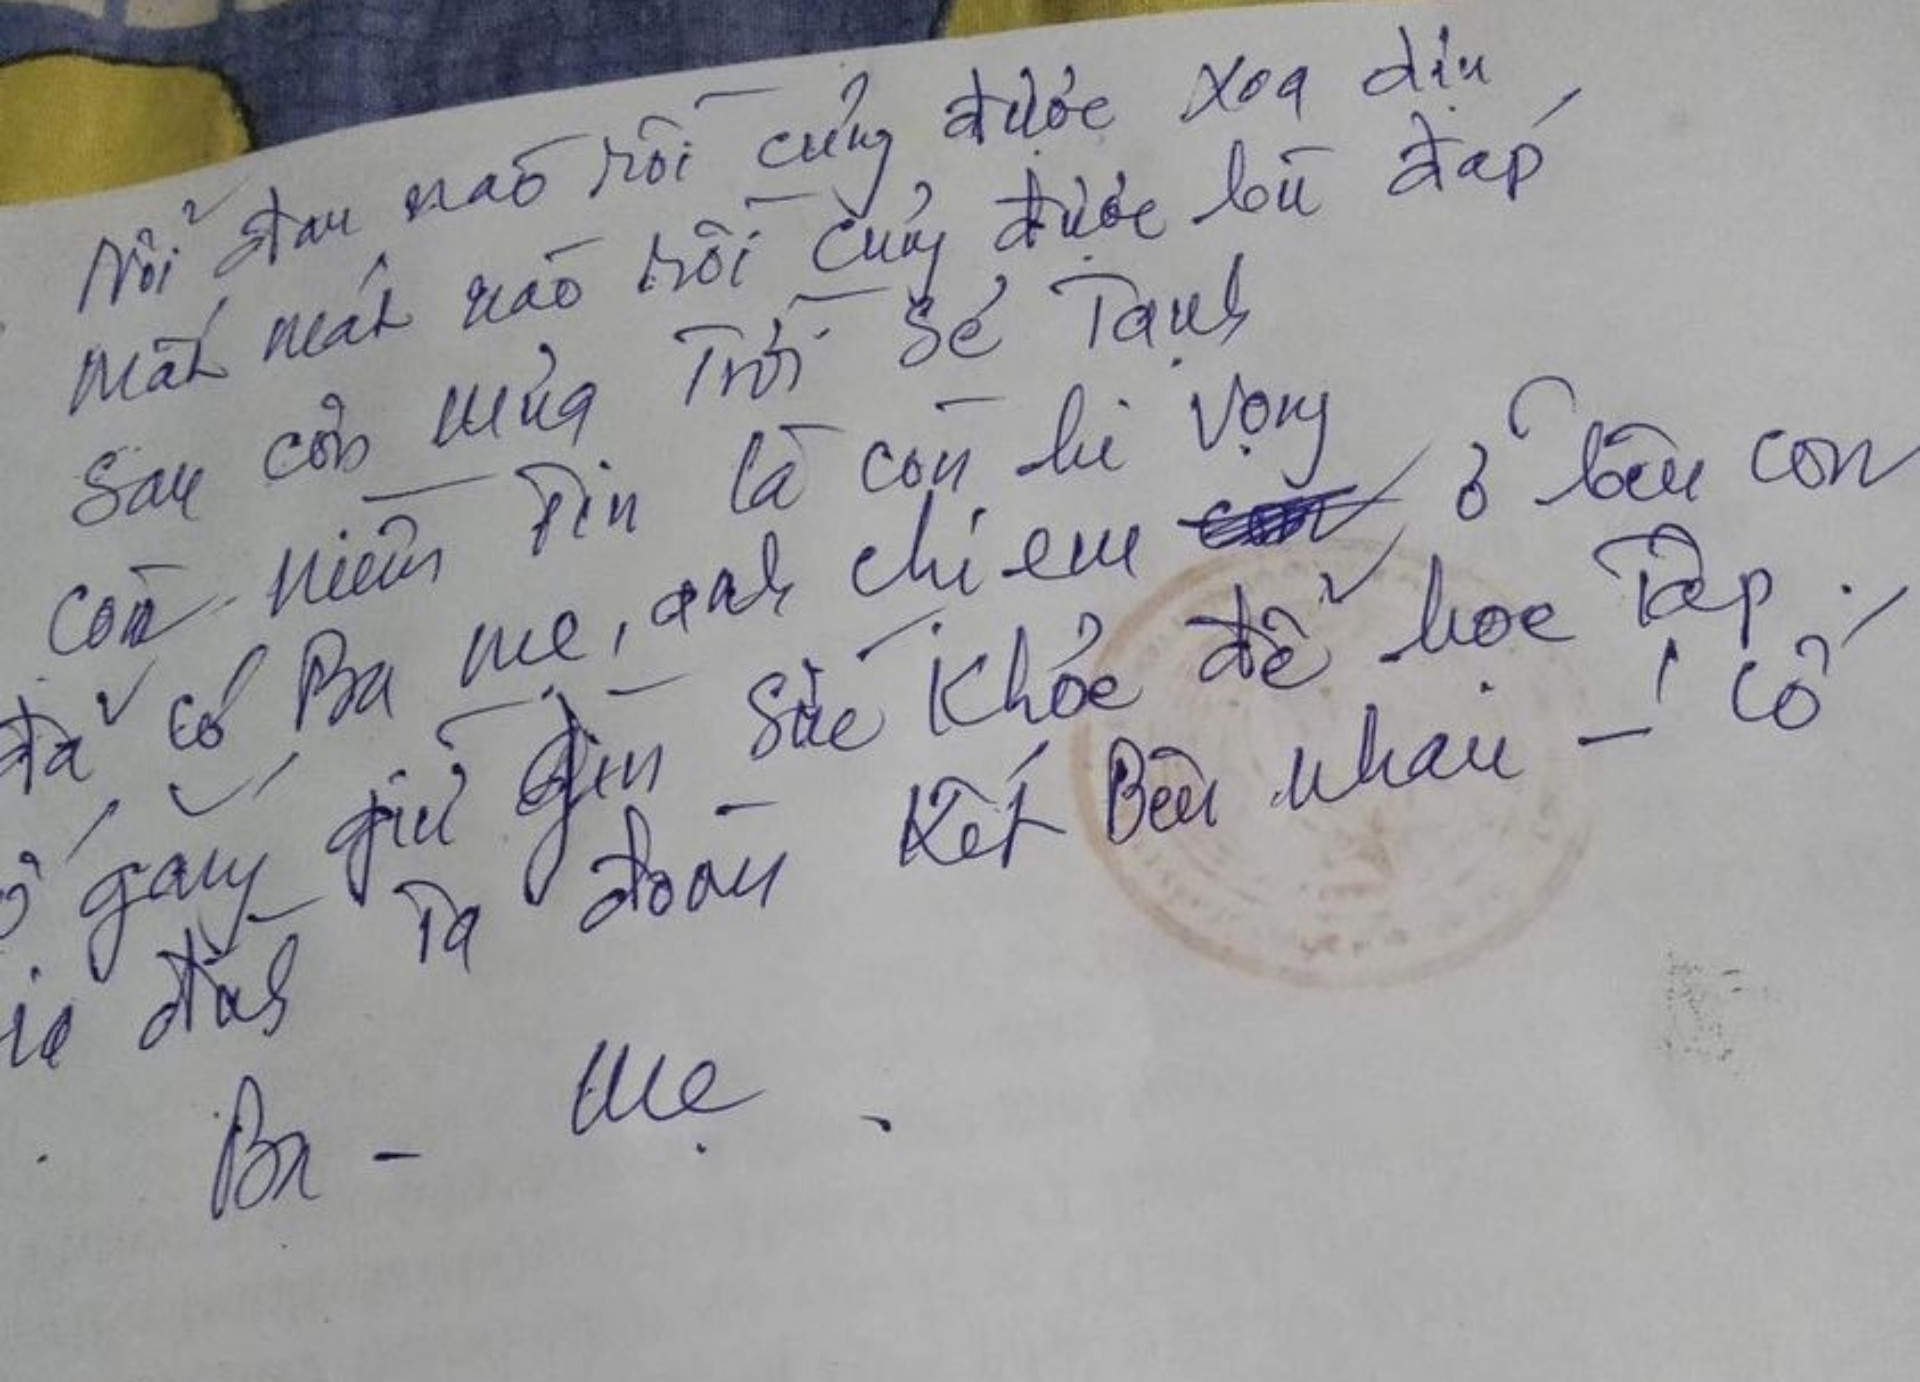 Nỗi đau nào rồi cũng được xoa dịu
mất mát nào rồi cũng được bù đắp
Sau cơn mưa Trời Sẽ Tạnh
Còn niềm Tin là còn hi vọng
đã có Ba mẹ, anh chị em ở bên con
gắng giữ gìn Sức Khỏe để học Tập.
đình Ta đoàn Kết Bên nhau - Cố
Ba - Mẹ.